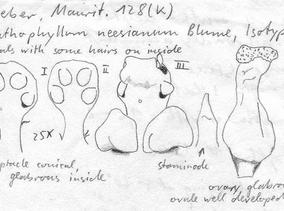 eber, Maurit. 128 (K)
nthophyllum neesianum Blume, Isotyp
als with some hairs on inside
I II III
25X
staminode
ptacle conical,
glabrous inside
ovary, glabrou
ovule well developed